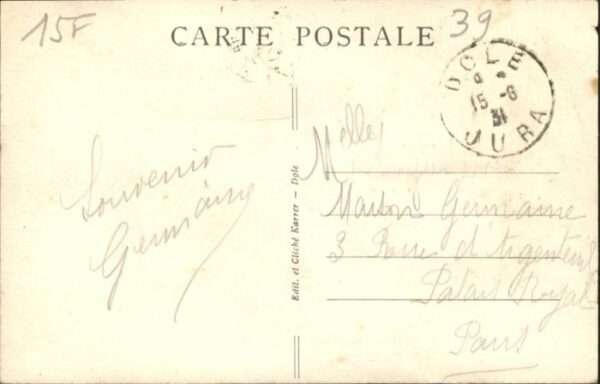 15F
39
CARTE POSTALE
DOLE
15 - 6
31
JURA
Souvenir
Germaine
Edit. et Cliché Karrer — Dole
Melle
Maison Germaine
3 Rue d'Argenteuil
Palais Royal
Paris